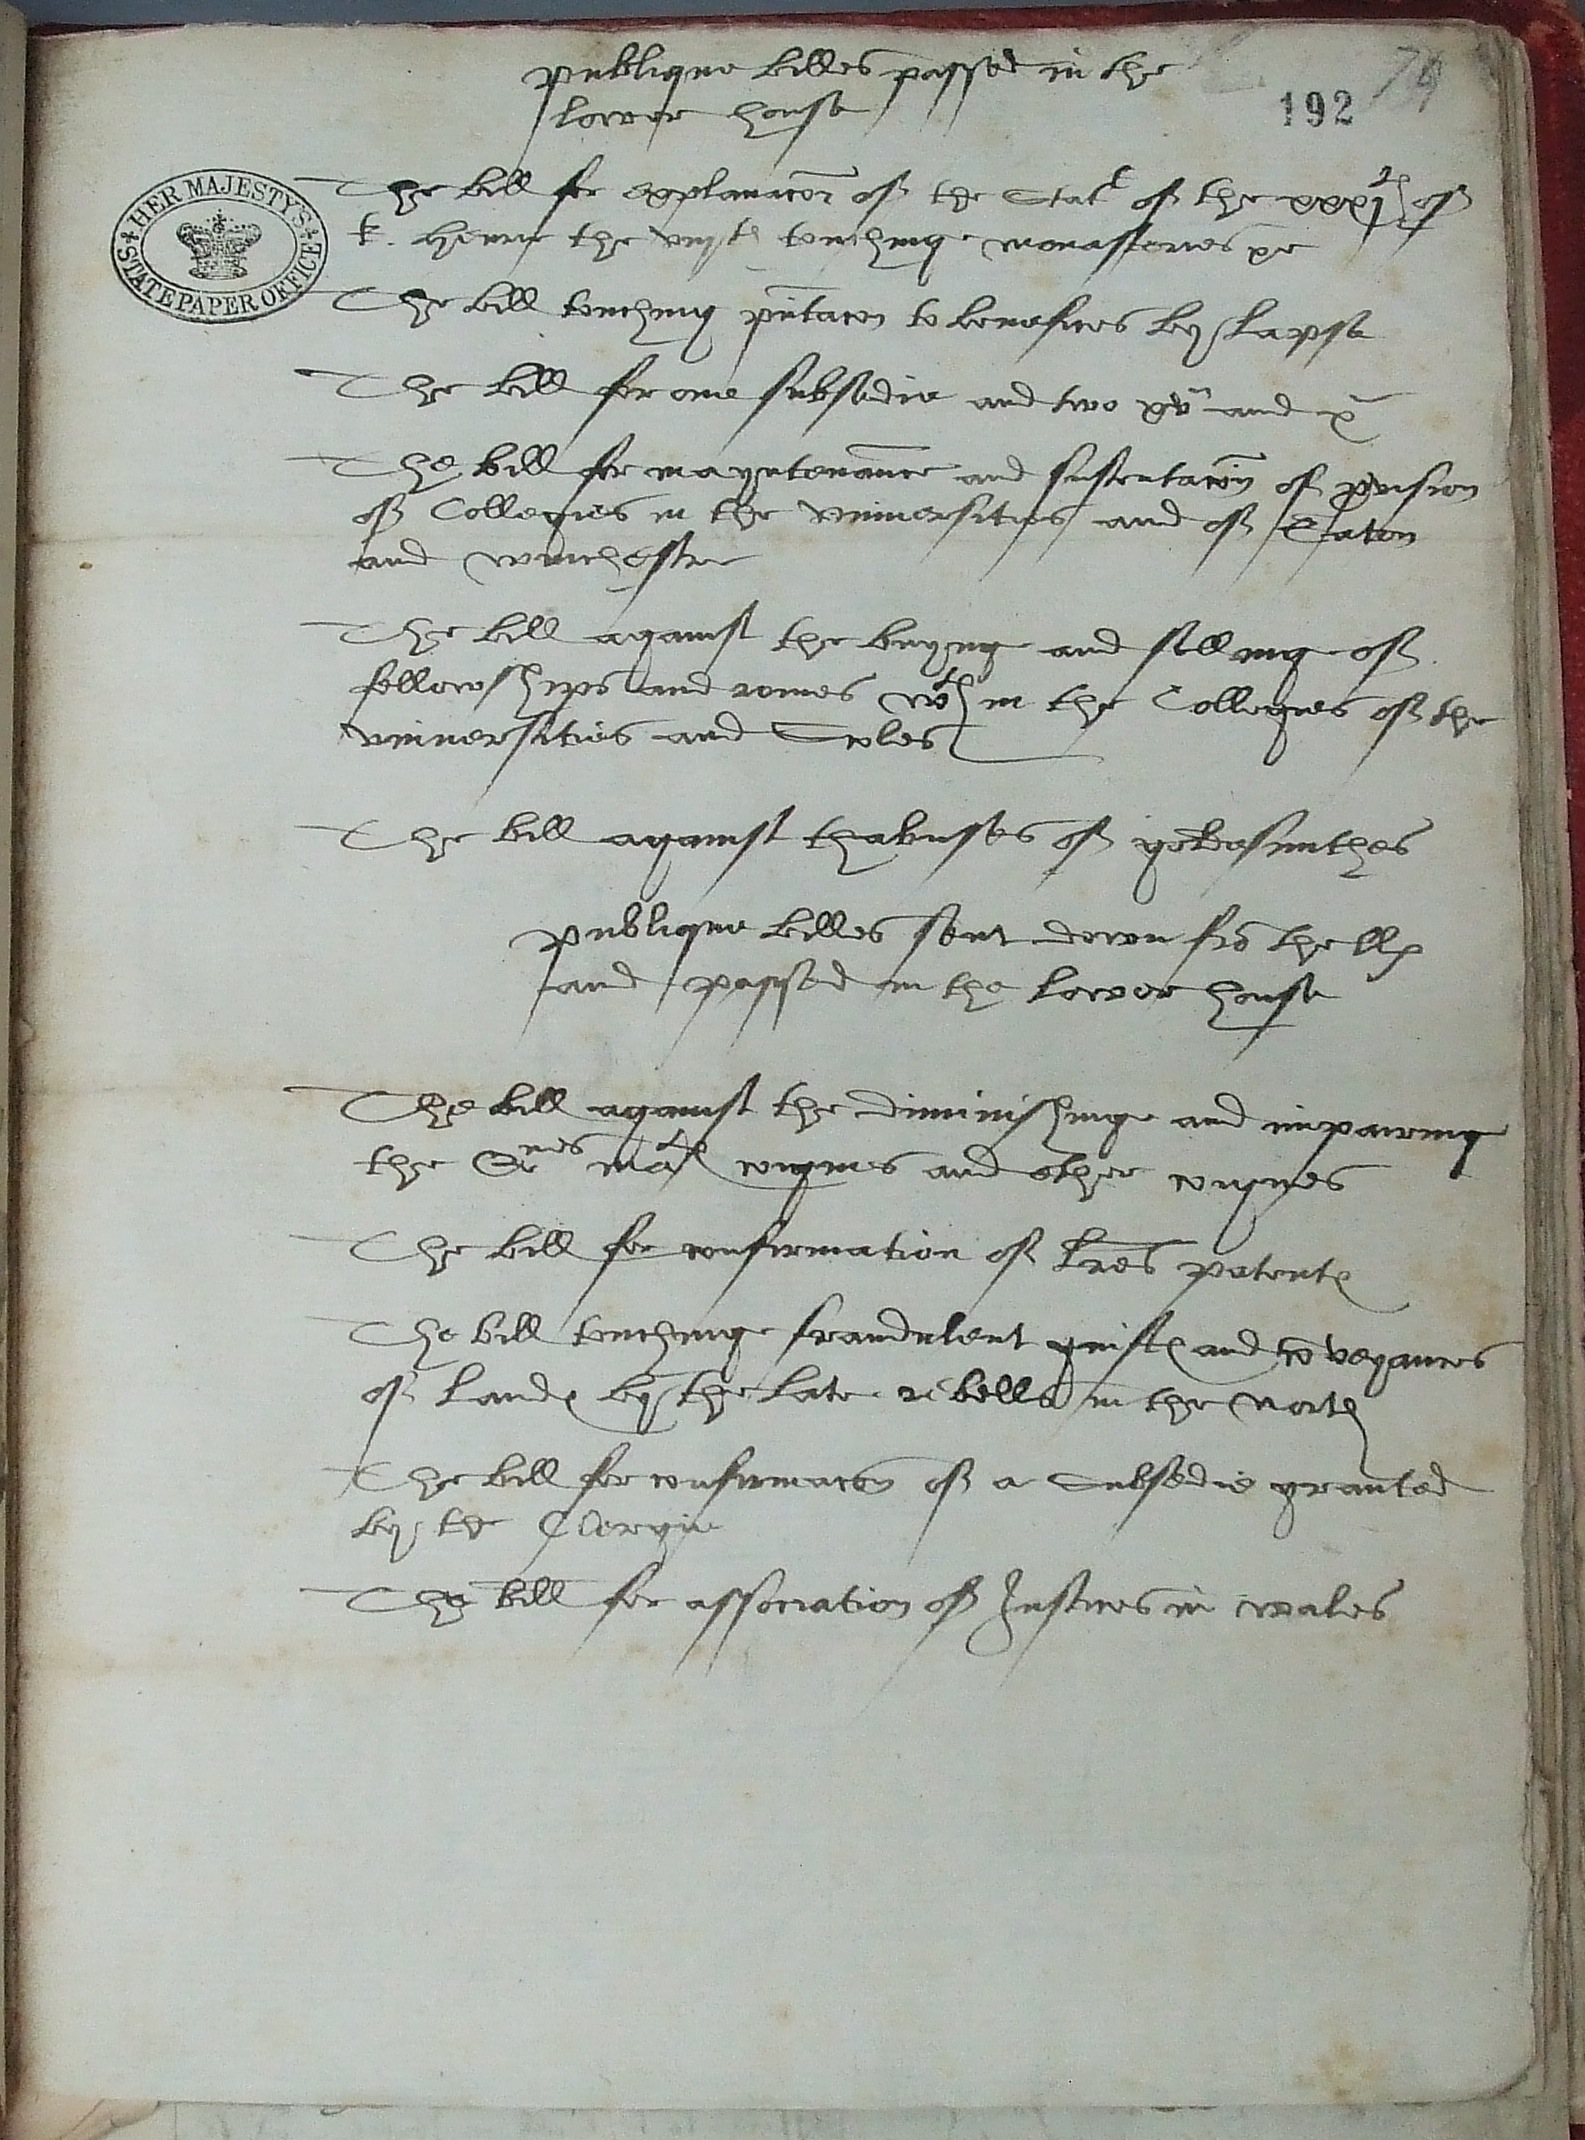 publique billes passed in the
lower house
192
74
HER MAJESTY'S STATE PAPER OFFICE
The bill for explanacon of the Stat of the xxxjth of
k. Henrie the viijth touching monasteries &c
The bill touching pntacon to benefices by lapse
The bill for one subsedie and two xv and x
The bill for mayntenance and sustentacon of pvision
of Collegies in the vniuersities and of Eaton
and winchestre
The bill against the buyng and selling of
fellowships and romes wth in the Collegies of the
vniuersities and Scoles
The bill against thabuses of
publique billes sent down fro the llp
and passed in the lower house
The bill against the diminishinge and impairing
the Qnes matp coynes and other coynes
The bill for confirmation of lres patentp
The bill touchinge fraudulent guiftp and coveyances
of landp by the late rebells in the North
The bill for confirmacon of a Subsedie graunted
by the Clergie
The bill for association of Justices in wales